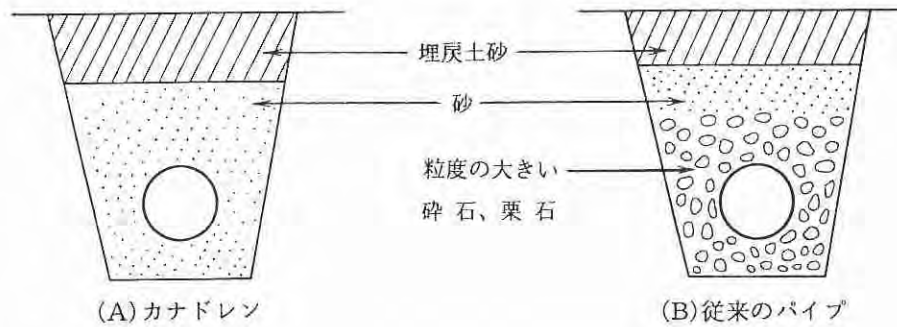 埋戻土砂
砂
粒度の大きい
砕石、栗石
(A)カナドレン
(B)従来のパイプ